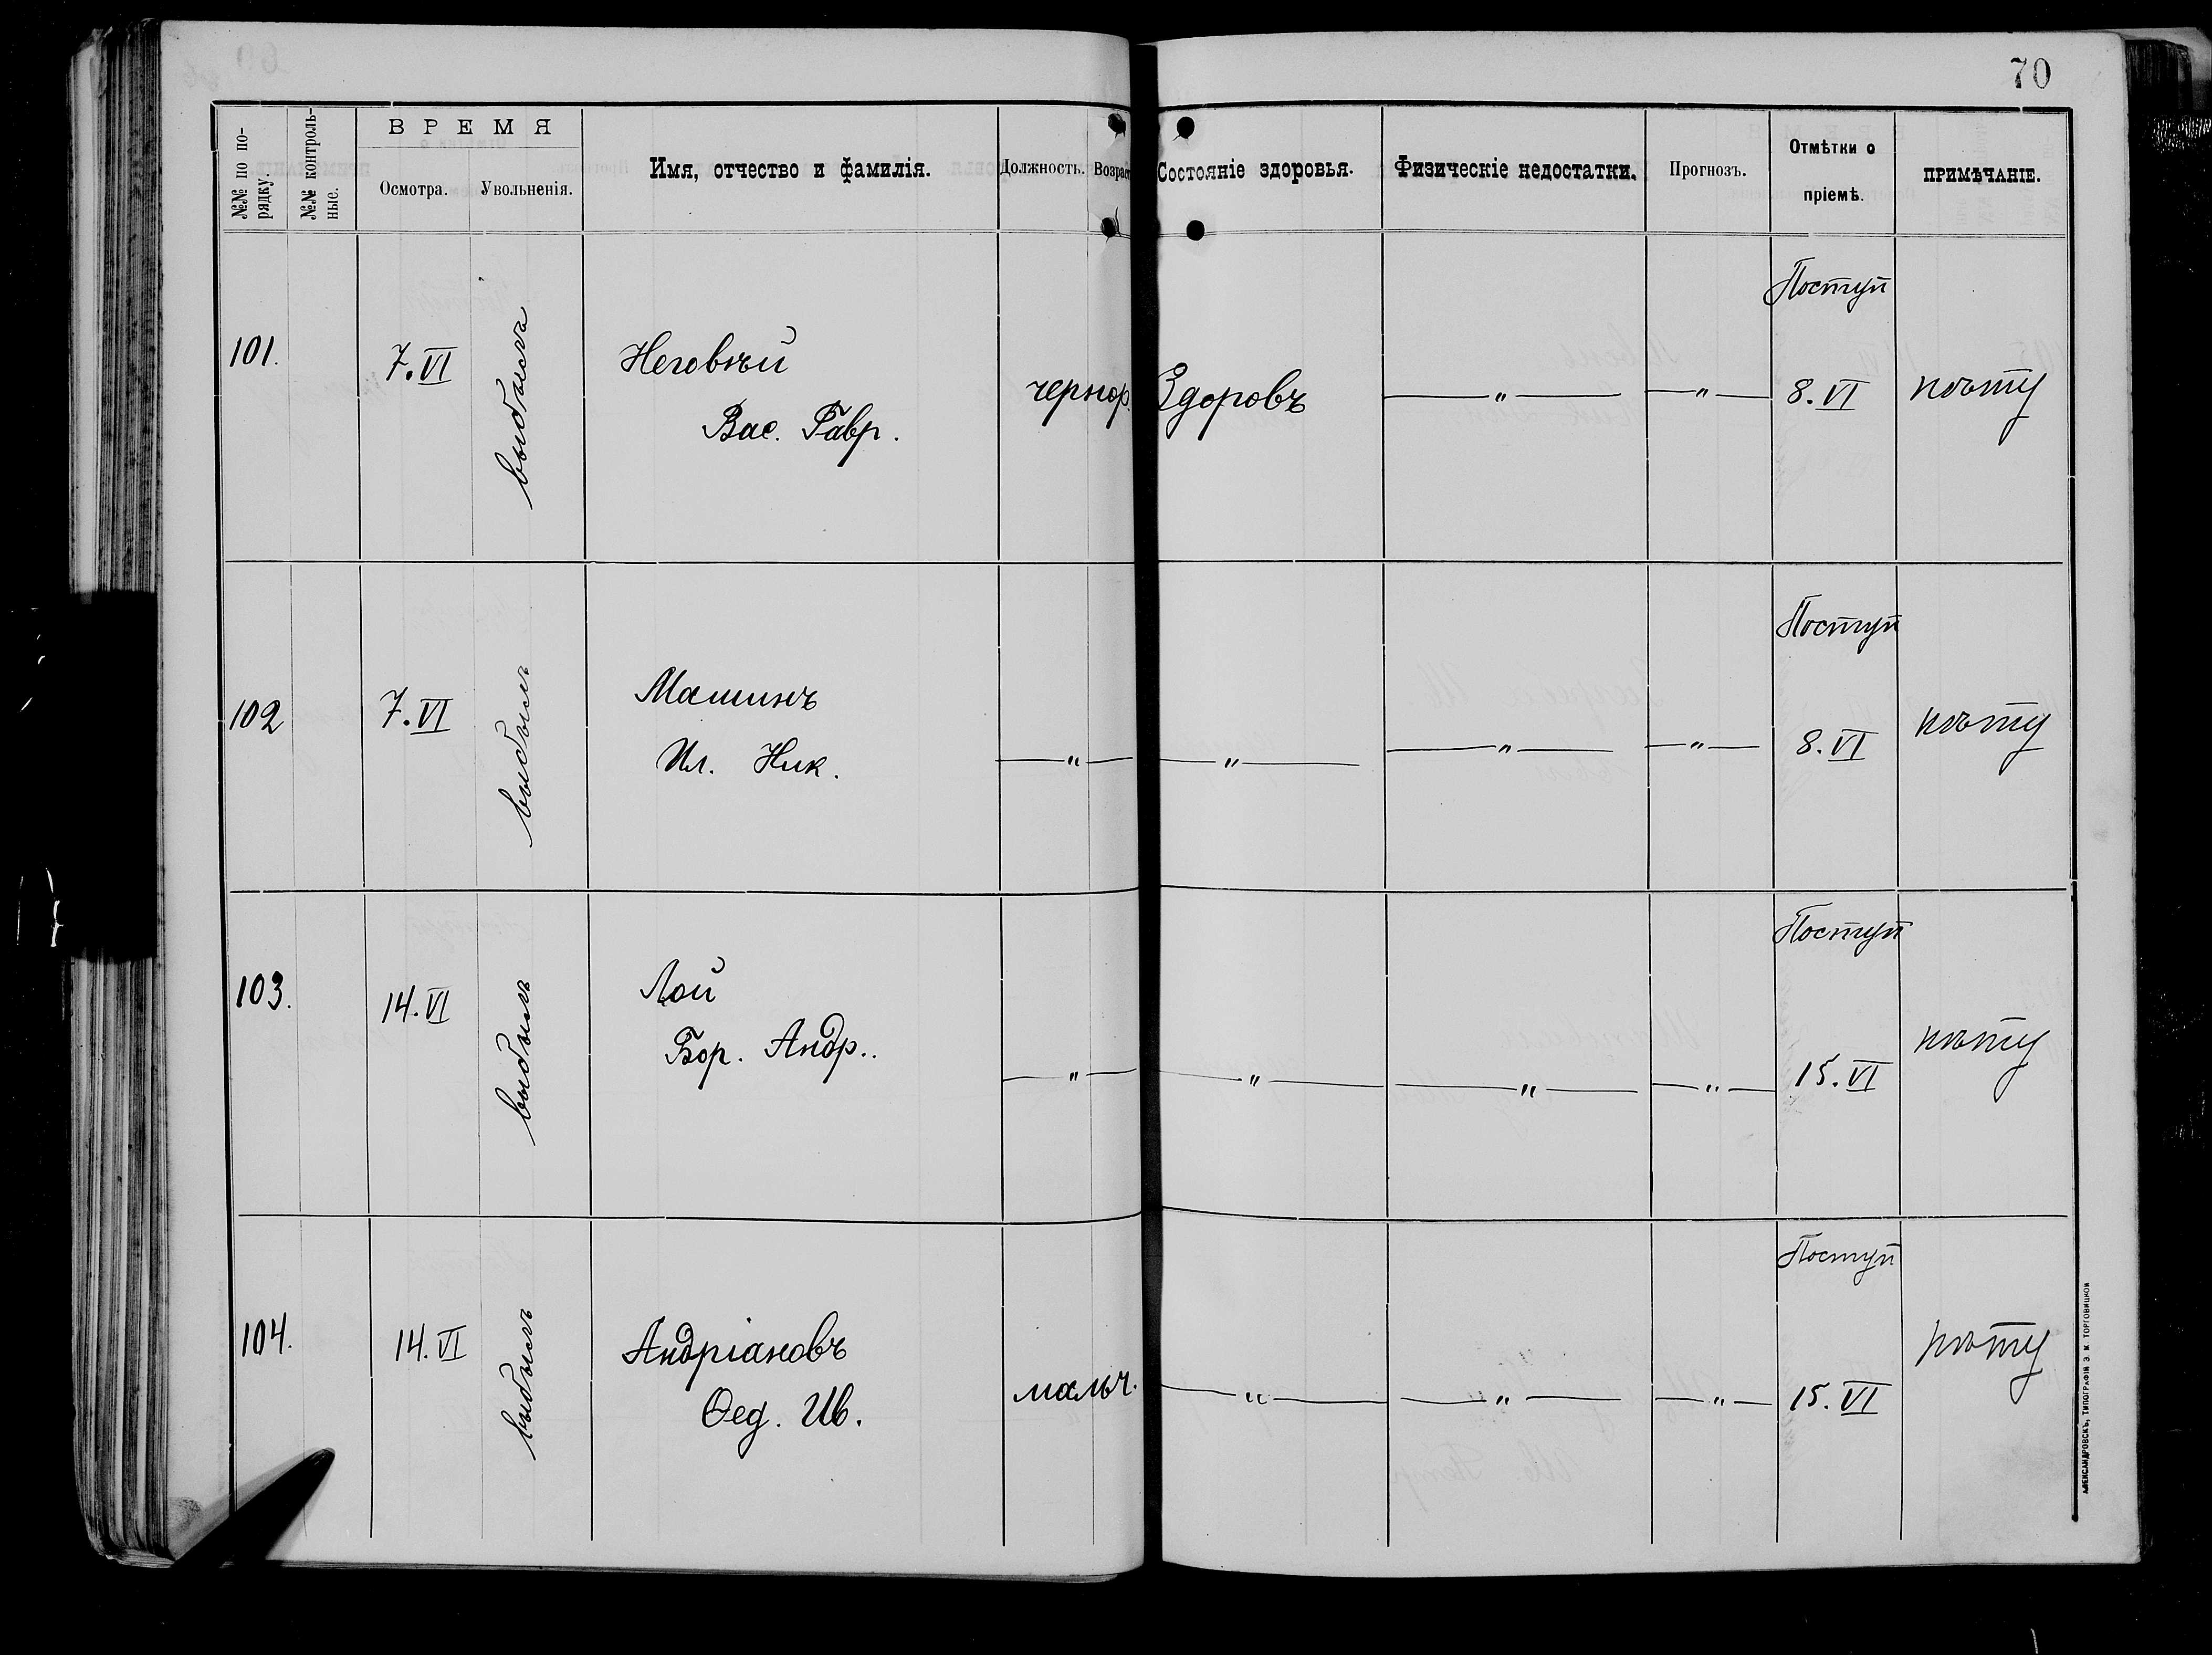 70
№№ по по-
рядку.
№№ контроль-
ные.
ВРЕМЯ
Осмотра.
Увольненія.
Имя, отчество и фамилія.
Должность.
Возраст
Состояніе здоровья.
Физическіе недостатки.
Прогнозъ.
Отмѣтки о
пріемѣ.
ПРИМѢЧАНІЕ.
101.
7.VI
выбылъ
Неговѣй
Вас. Гавр.
чернор.
Здоровъ
— " —
— " —
Поступ
8.VI
нѣту
102
7.VI
выбылъ
Машинъ
Ил. Ник.
— " —
— " —
— " —
— " —
Поступ
8.VI
нѣту
103.
14.VI
выбылъ
Лой
Бор. Андр..
— " —
— " —
— " —
— " —
Поступ
15.VI
нѣту
104.
14.VI
выбылъ
Андріановъ
Ѳед. Ив.
мальч.
— " —
— " —
— " —
Поступ
15.VI
нѣту
АЛЕКСАНДРОВСКЪ, ТИПОГРАФІЯ Э. И. ТОРГОВИЦКОЙ